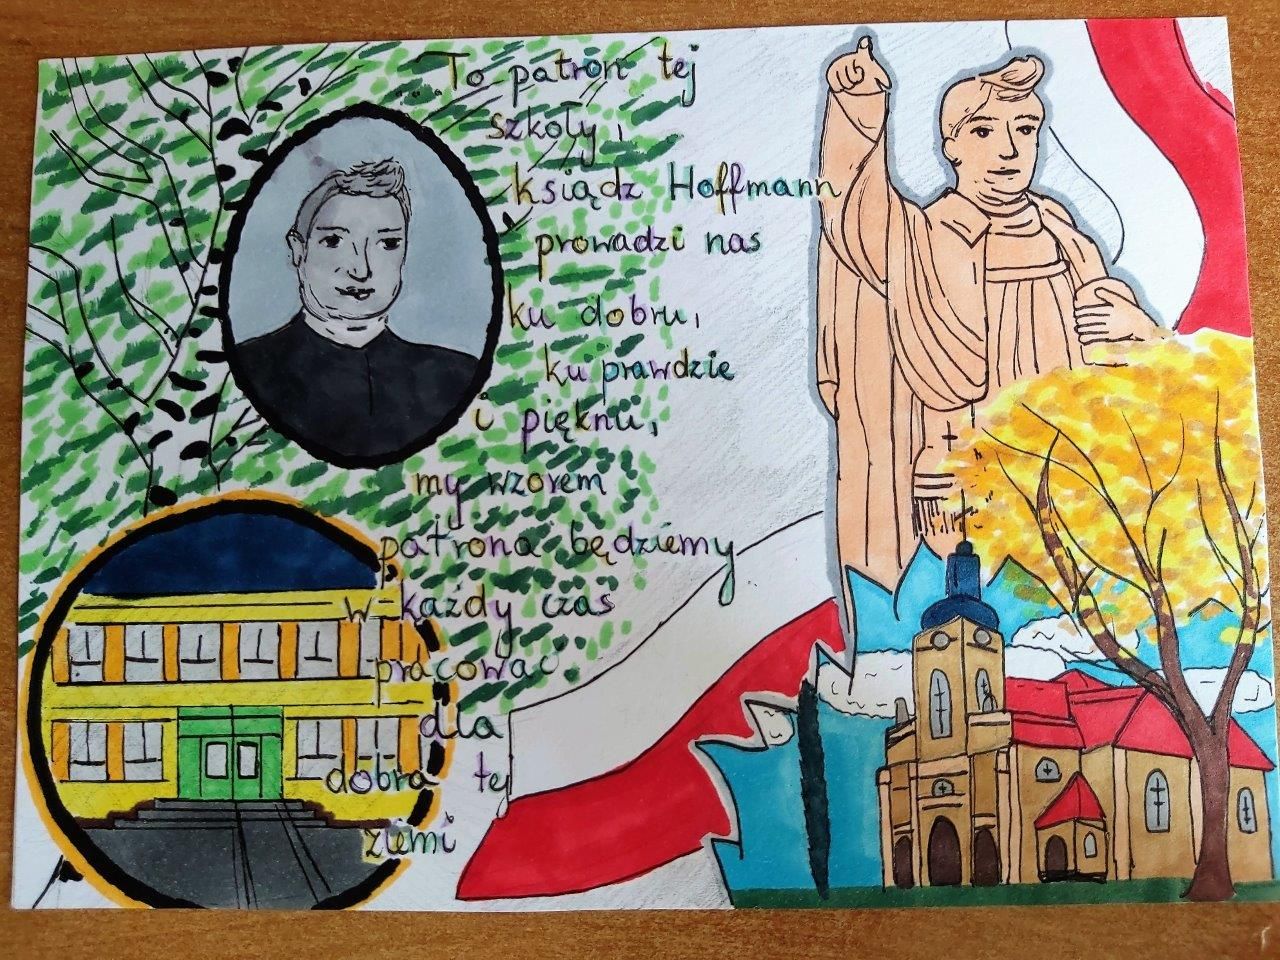 To patron tej
szkoły,
ksiądz Hoffmann
prowadzi nas
ku dobru,
ku prawdzie
i pięknu,
my wzorem
patrona będziemy
w każdy czas
pracować
dla
dobra tej
ziemi